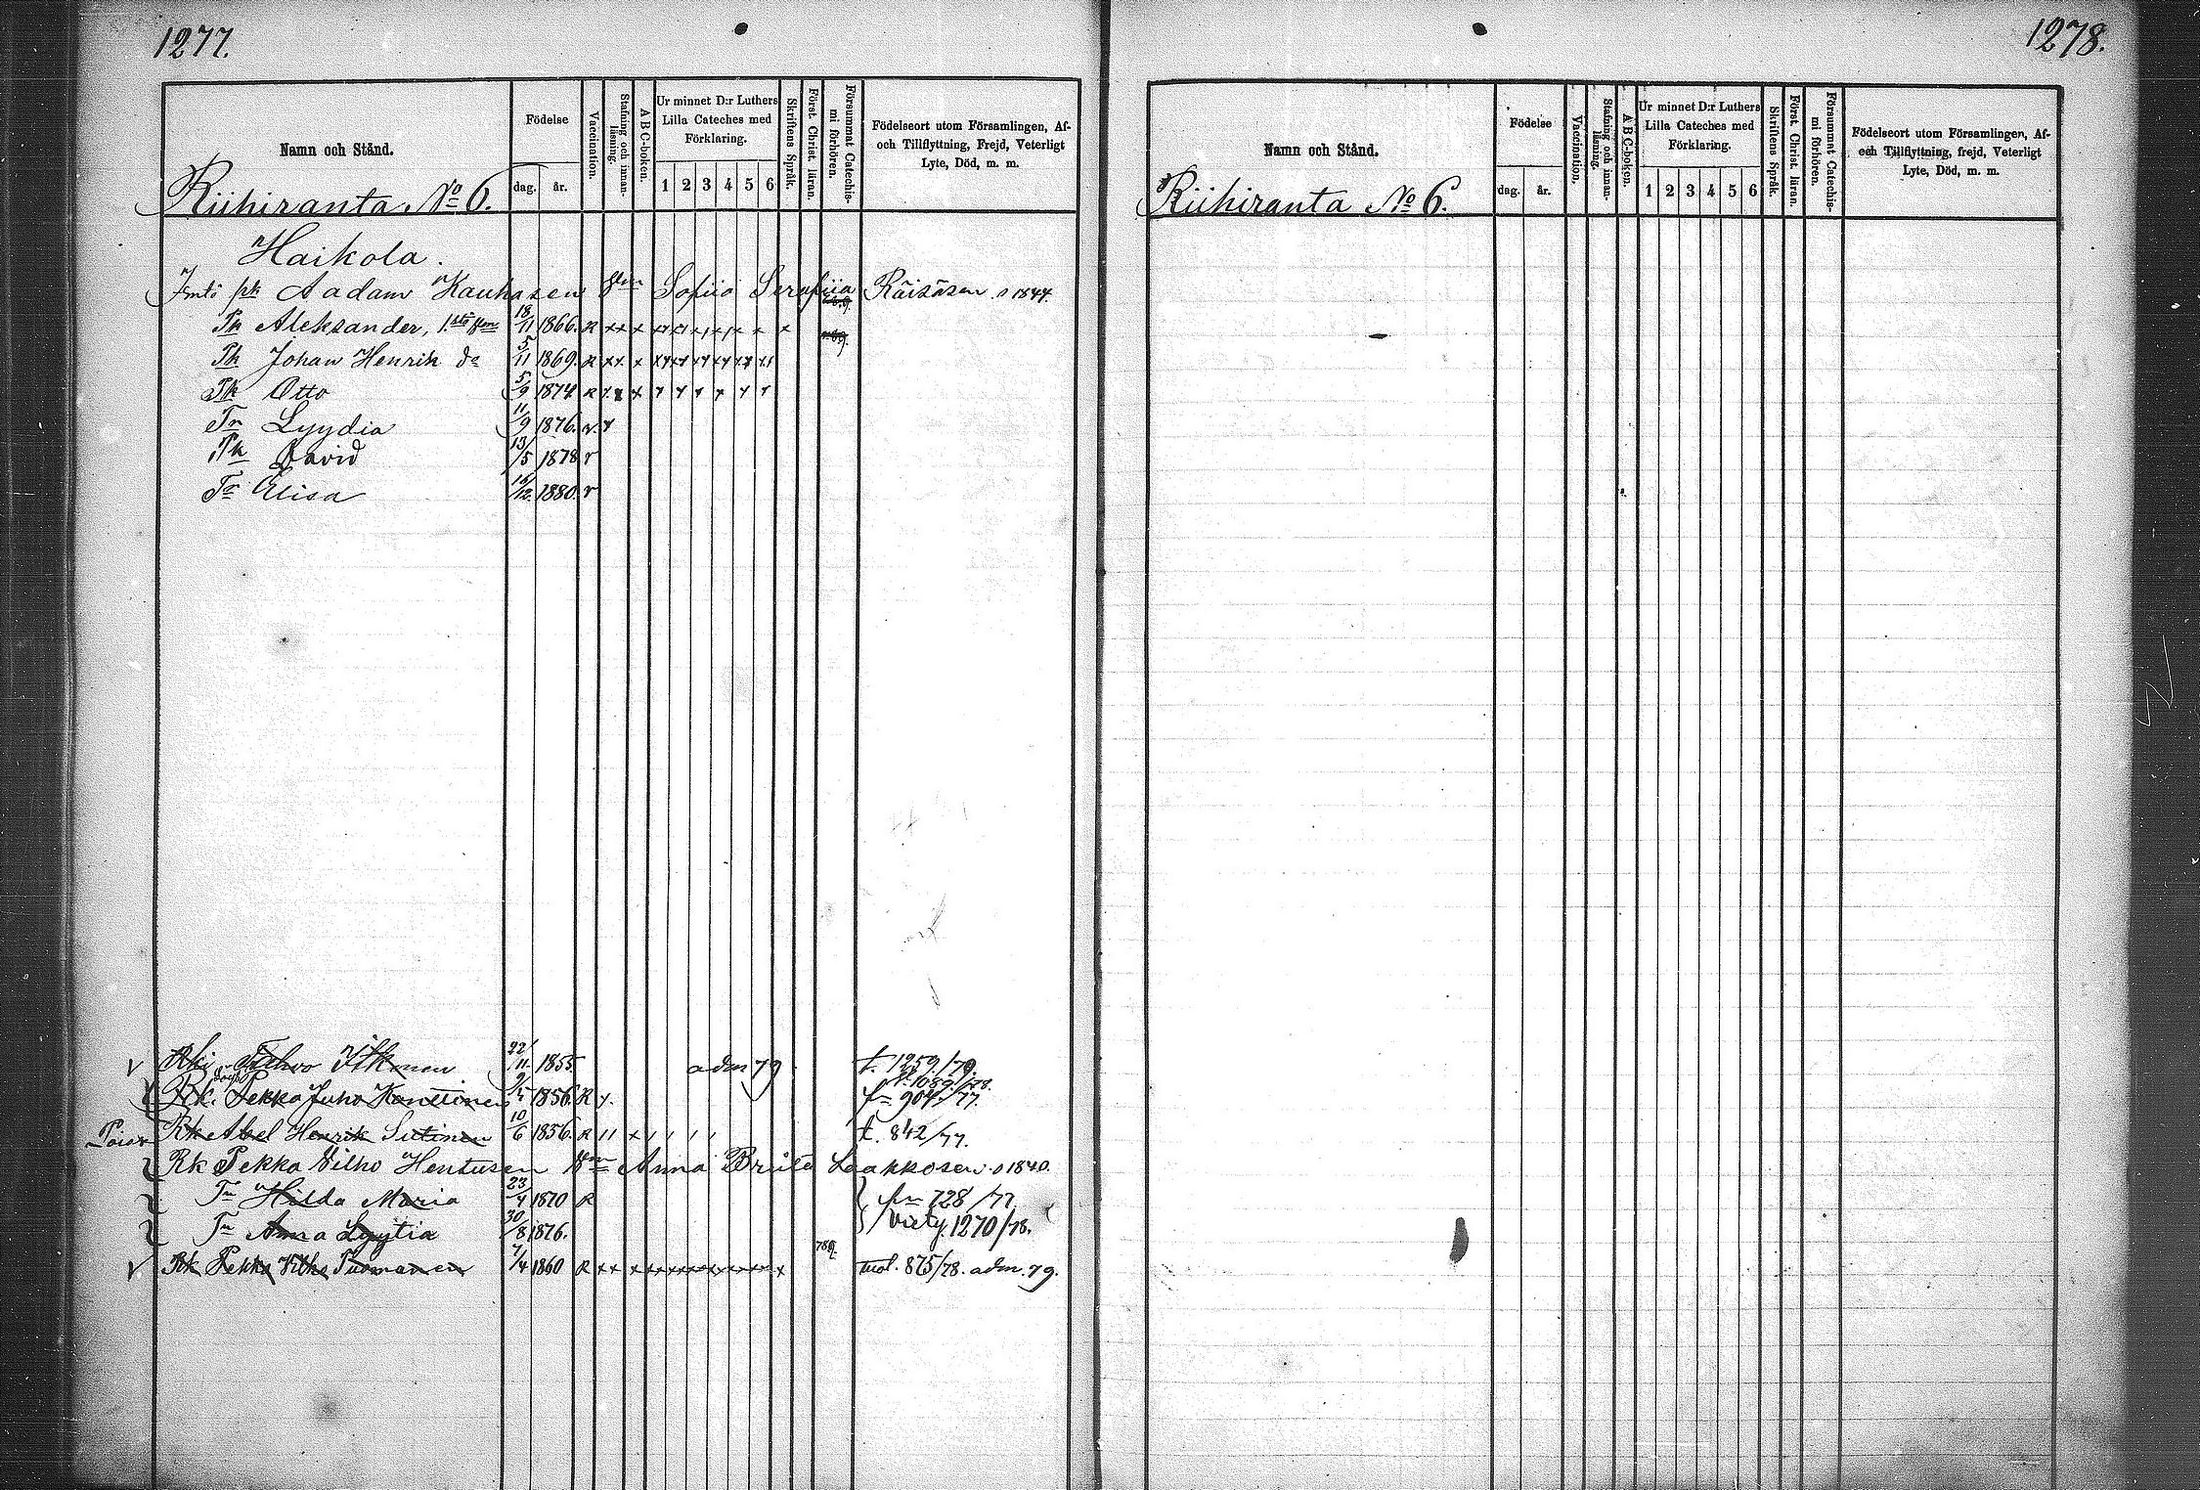 1277.
Namn och Stånd.
Födelse
dag.
år.
Vaccination.
Stafning och innan-läsning.
A B C-boken.
Ur minnet D:r Luthers
Lilla Cateches med
Förklaring.
1 2 3 4 5 6
Skriftens Språk.
Först. Christ. läran.
Försummat Catechis-
mi förhören.
Födelseort utom Församlingen, Af-
och Tillflyttning, Frejd, Veterligt
Lyte, Död, m. m.
Riihiranta No 6.
Haikola.
pk Aadam Kauhasen Sofiia Serafiia Räisäsen s 1844.
Pk Aleksander, 18/11 1866. R xx x x
Pk Johan Henrik do 5/11 1869. R xx x
Pk Otto 5/9 1874. R x x
Tr Lyydia 11/9 1876. v. x
Pk David 13/5 1878 v
Tr Elisa 16/12 1880. v
Itkonen 22/11 1855 adm 79. t. 1259/79.
t. 1089/78.
Pekka Juho Konttinen 9/5 1856. R x. 904/77.
Rk Abel Henrik Sutinen 10/6 1856. R t. 842/77.
Rk Pekka Vilho Hentusen Anna Briita Laakkosen s 1840.
Tr Hilda Maria 23/4 1870 R 728/77
Tr Anna Lyytia 30/8 1876. Viety. 1270/78.
789.
Rk Pekka Vilho Tuomainen 7/4 1860 R xx x tuol. 875/78. adm. 79.
1278.
Namn och Stånd.
Födelse
dag.
år.
Vaccination.
Stafning och innan-läsning.
A B C-boken.
Ur minnet D:r Luthers
Lilla Cateches med
Förklaring.
1 2 3 4 5 6
Skriftens Språk.
Först. Christ. läran.
Försummat Catechis-
mi förhören.
Födelseort utom Församlingen, Af-
och Tillflyttning, frejd, Veterligt
Lyte, Död, m. m.
Riihiranta No 6.